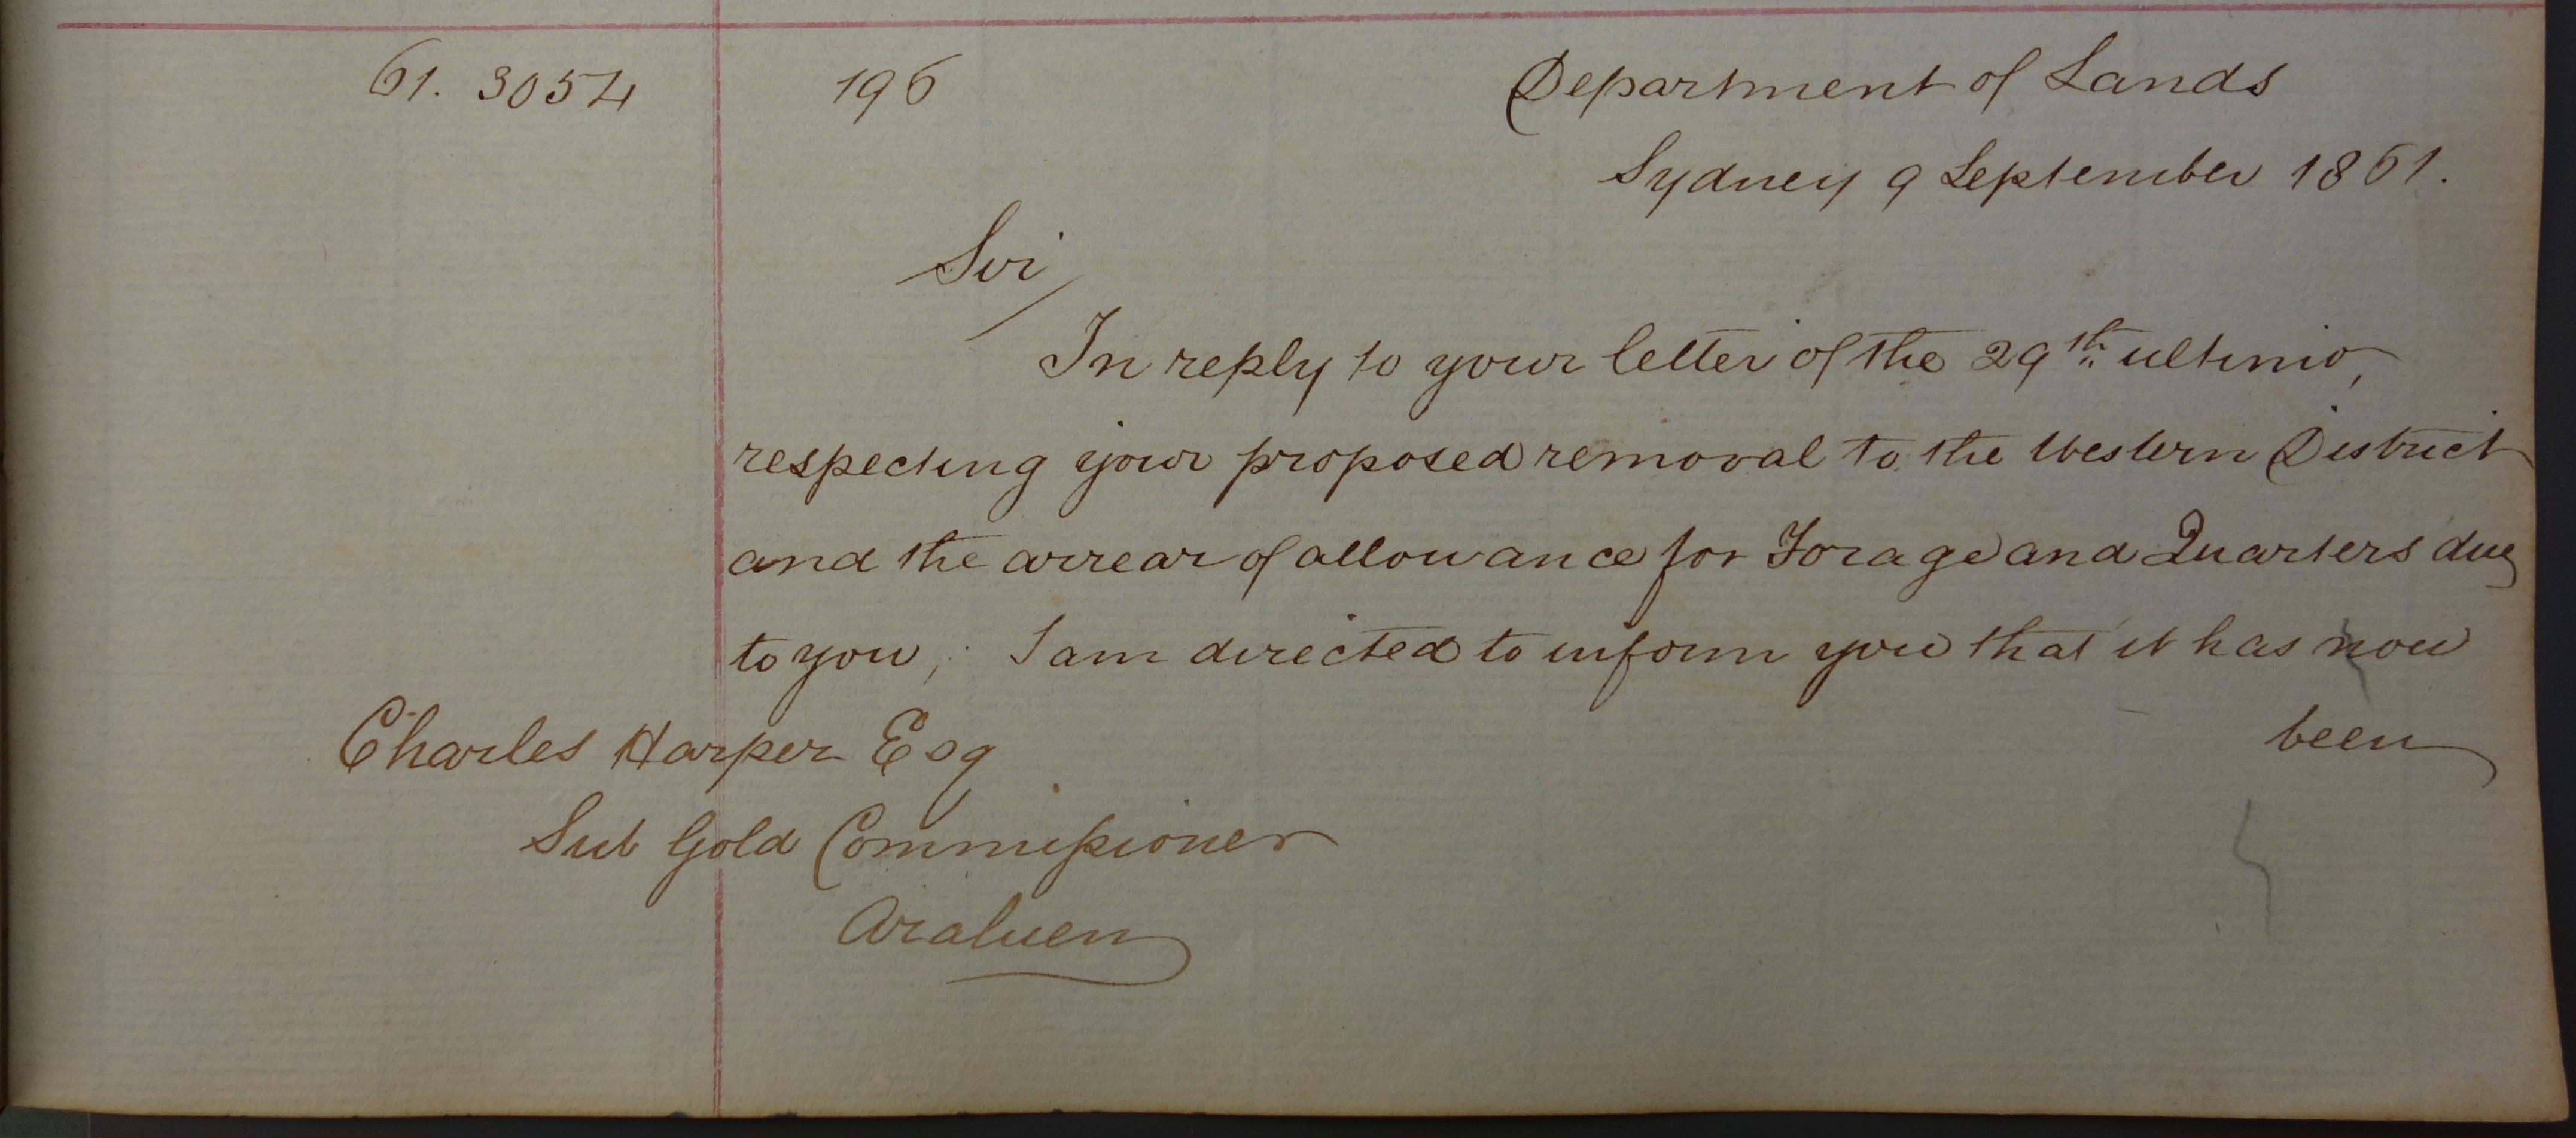 61. 3054 196 Department of Lands
Sydney 9 September 1861.
Sir
In reply to your letter of the 29th ultimo,
respecting your proposed removal to the Western District
and the arrear of allowance for Forage and Quarters due
to you, I am directed to inform you that it has now
been
Charles Harper Esq
Sub Gold Commissioner
Araluen